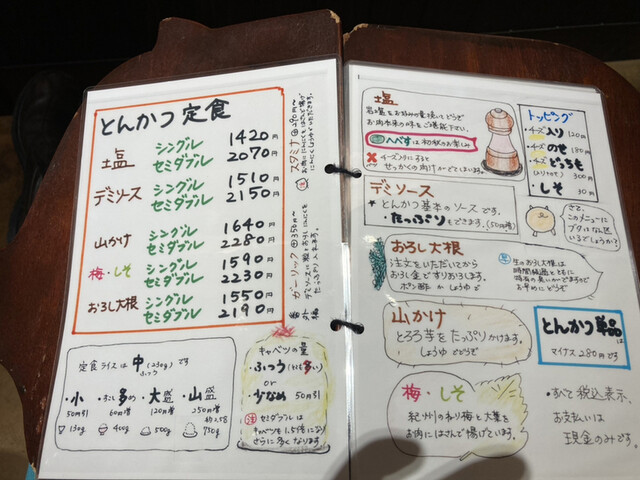 とんかつ定食
塩 シングル 1420円
セミダブル 2070円
デミソース シングル 1510円
セミダブル 2150円
山かけ シングル 1640円
セミダブル 2280円
梅・しそ シングル 1590円
セミダブル 2230円
おろし大根 シングル 1550円
セミダブル 2190円
スタミナ
ガーリック
番外編
定食ライスは中(230g)です
ふつう
・小 50円引 130g
・ちょい多め 60円増 400g
・大盛 120円増 500g
・山盛 250円増 730g
キャベツの量
・ふつう(けっこう多い)
or
・少なめ 50円引
注 セミダブルは
キャベツも1.5倍になり
さらに多くなります
塩
岩塩をお好みの量挽いてどうぞ
お肉本来の味をご堪能下さい。
へべすは初秋のお楽しみ
チーズ入りにすると
せっかくの肉汁がでてしまいます。
デミソース
とんかつ基本のソースです。
・たっぷりもできます。(50円増)
おろし大根
注文をいただいてから
おろし金ですりおろします。
ポン酢 か しょうゆ で
生のおろし大根は
時間経過とともに
特有の臭いがでますので
お早めにどうぞ
山かけ
とろろ芋をたっぷりかけます。
しょうゆ でどうぞ
梅・しそ
紀州のねり梅と大葉を
お肉にはさんで揚げています。
トッピング
・チーズ入り 120円
・チーズのせ 180円
・チーズどっちも 300円
・しそ 30円
さて、
このメニューに
ブタはなん匹
いるでしょうか?
とんかつ単品は
マイナス280円です
・すべて税込表示。
お支払いは
現金のみです。